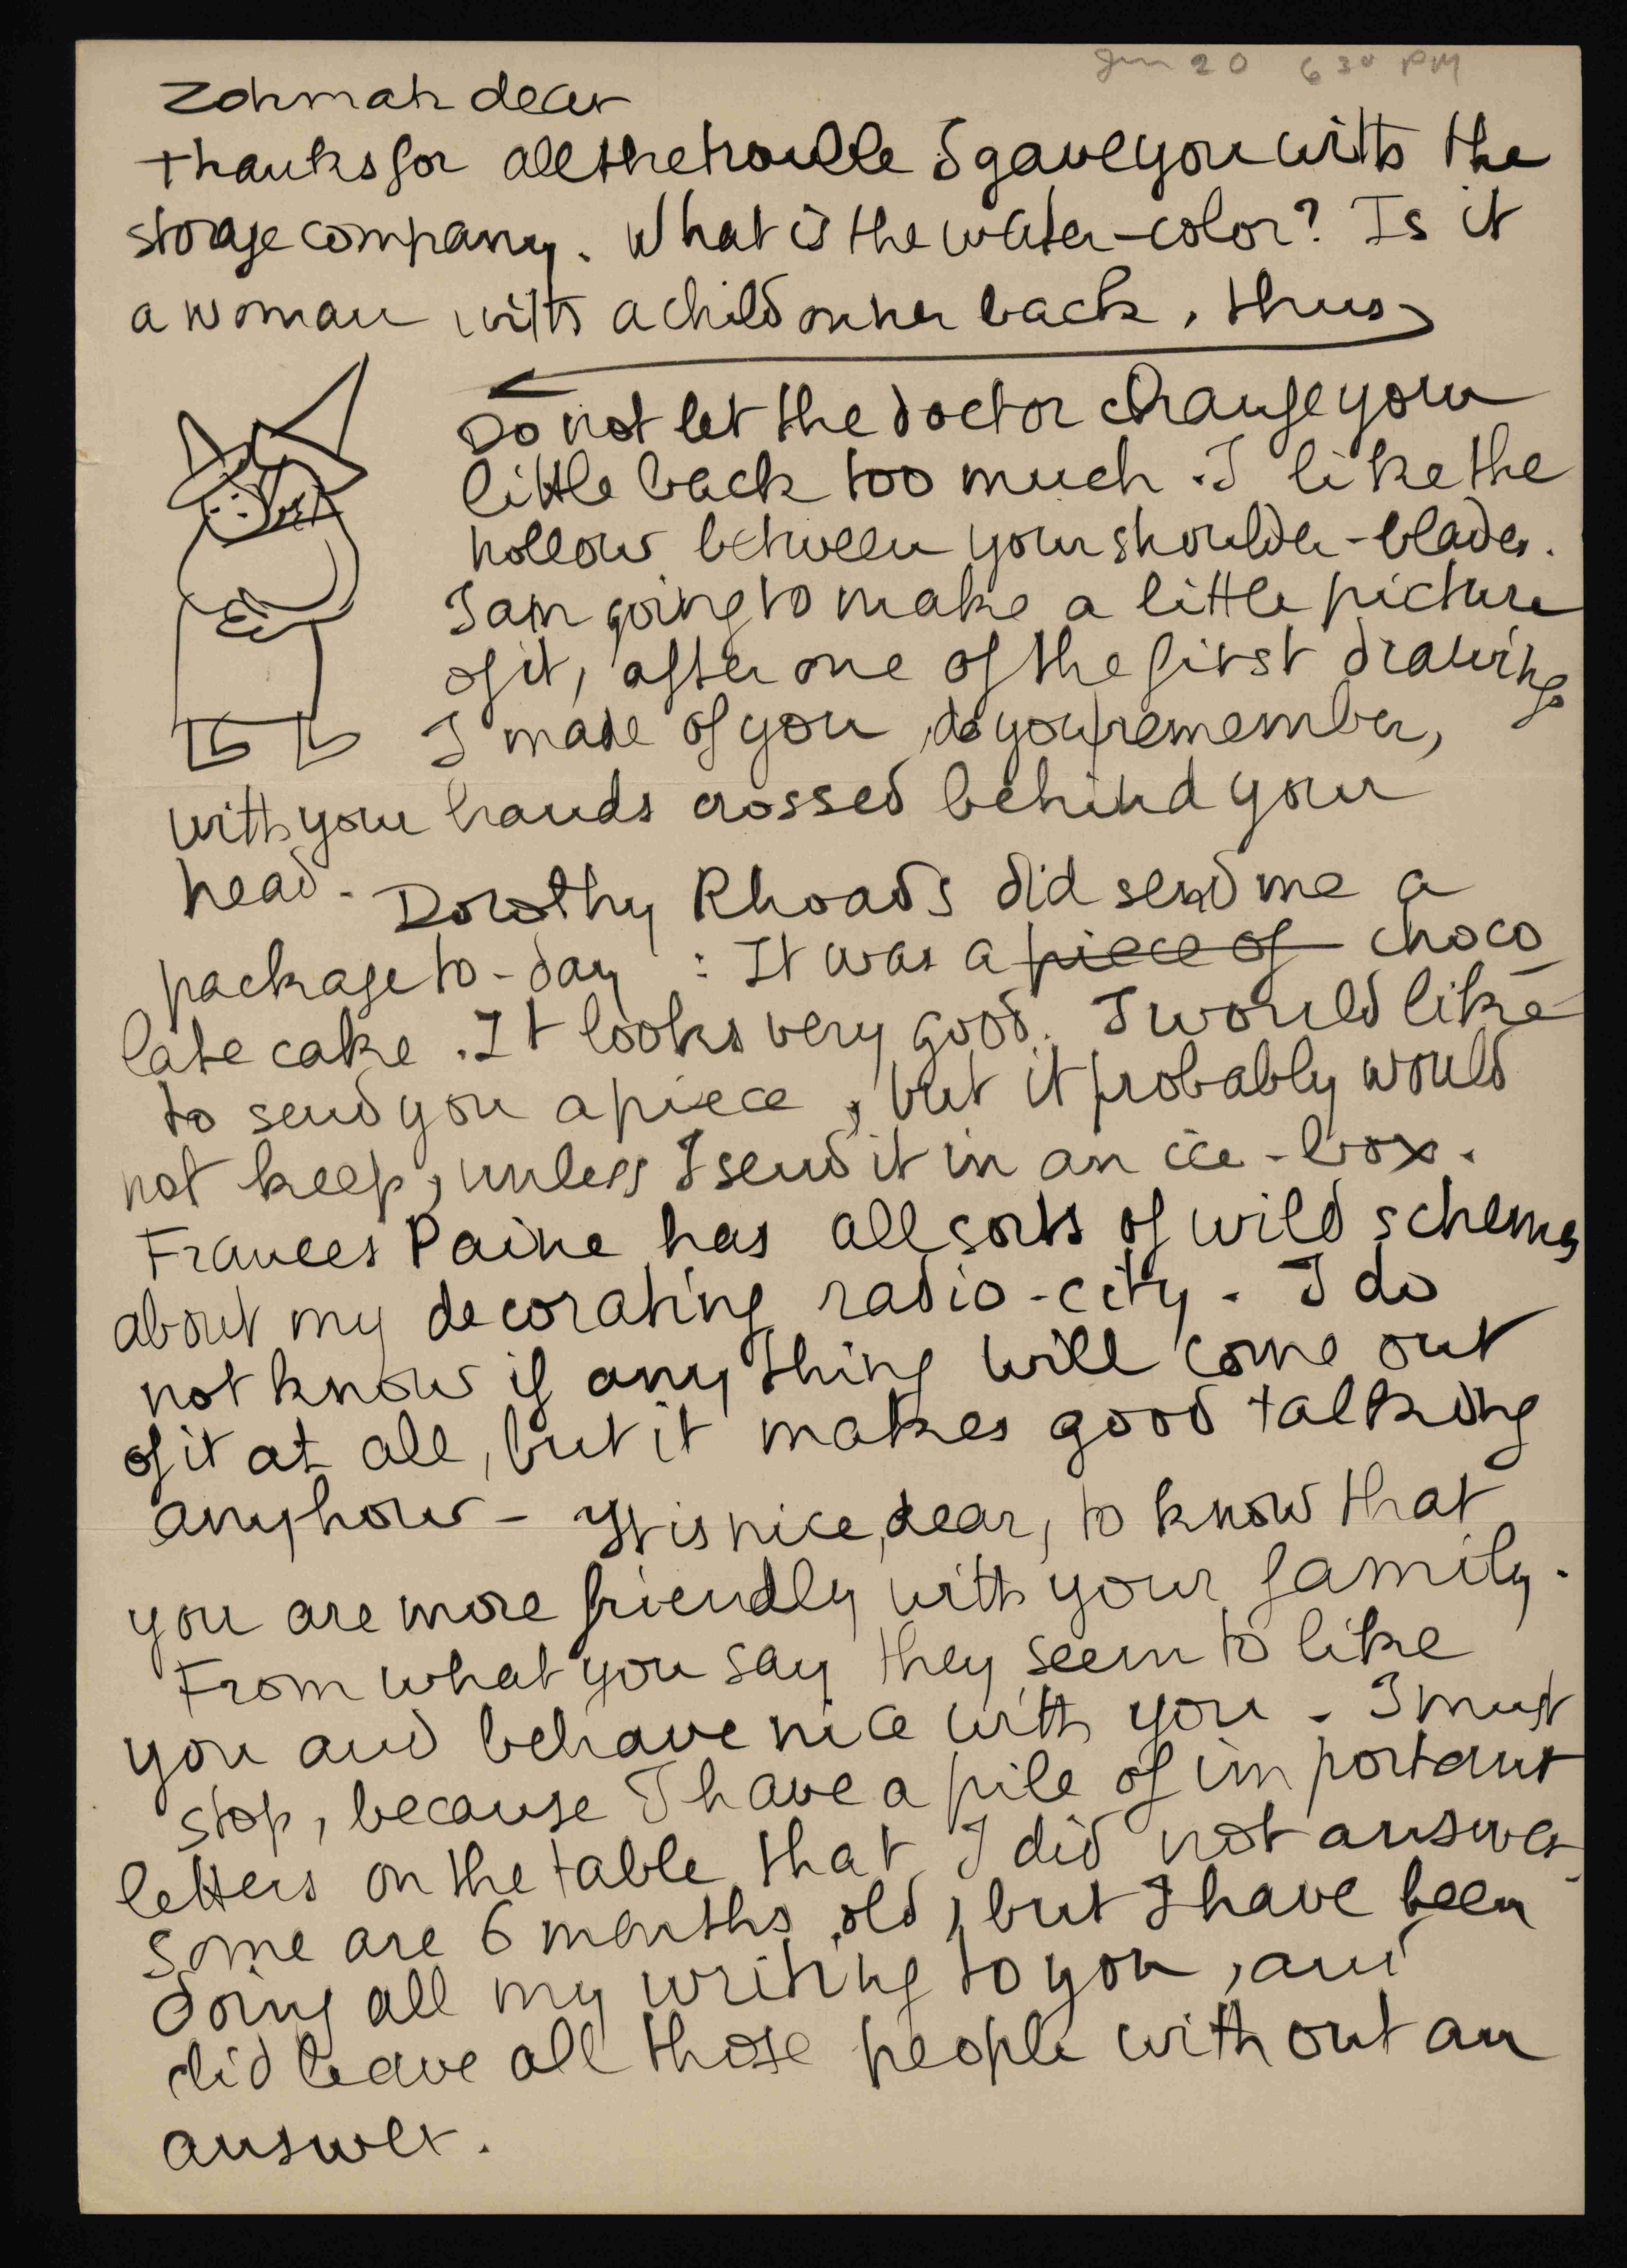 Jun 20 6 30 PM
Zohmah dear
Thanks for all the trouble I gave you with the
storage company. What is the water-color? Is it
a woman with a child on her back, thus
Do not let the doctor change your
little back too much. I like the
hollow between your shoulder-blades.
I am going to make a little picture
of it, after one of the first drawings
I made of you, do you remember,
with your hands crossed behind your
head. Dorothy Rhoads did send me a
package to-day : It was a piece of choco
late cake. It looks very good. I would like
to send you a piece, but it probably would
not keep, unless I send it in an ice-box.
Frances Paine has all sorts of wild schemes
about my decorating radio-city. I do
not know if anything will come out
of it at all, but it makes good talking
anyhow - It is nice, dear, to know that
you are more friendly with your family.
From what you say they seem to like
you and behave nice with you. I must
stop, because I have a pile of important
letters on the table that I did not answer.
Some are 6 months old, but I have been
doing all my writing to you, and
did leave all those people without an
answer.